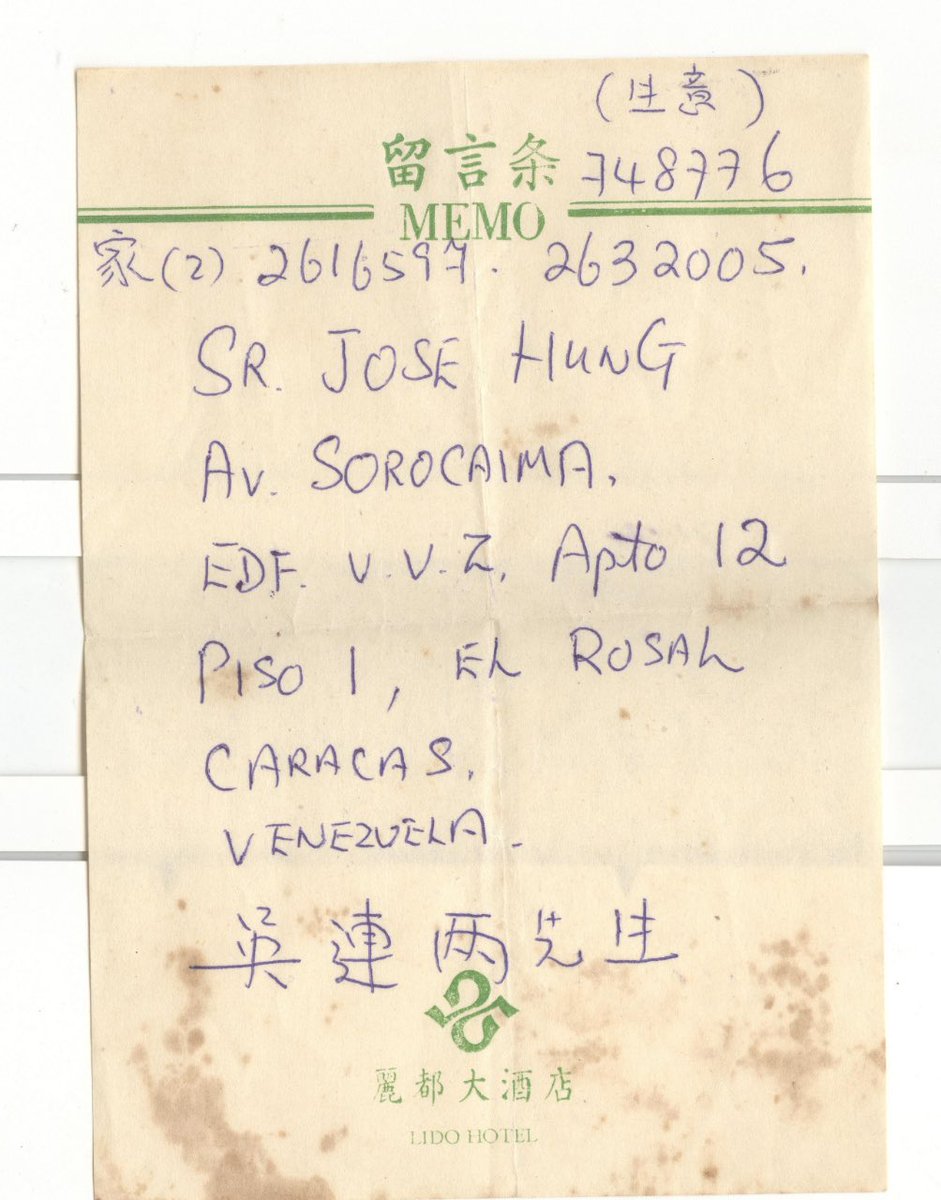 (生意)
留言条 748776
MEMO
家(2) 2616597. 2632005.
SR. JOSE HUNG
AV. SOROCAIMA.
EDF. V.V.Z. Apto 12
PISO 1, EL ROSAL
CARACAS.
VENEZUELA.
吳連两先生
麗都大酒店
LIDO HOTEL